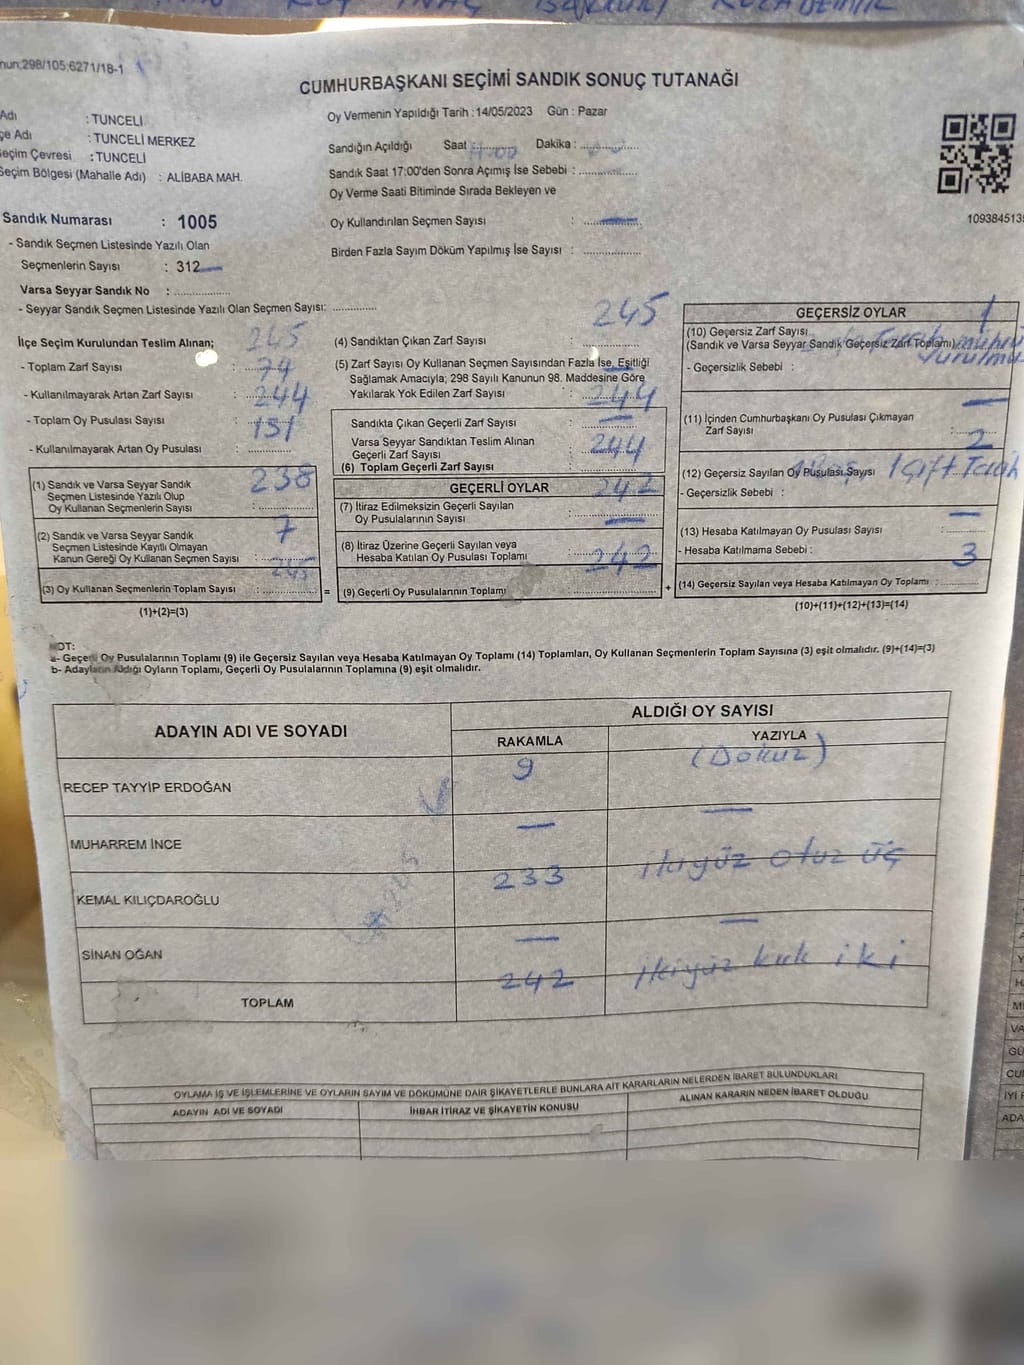 298/105;6271/18-1
CUMHURBAŞKANI SEÇİMİ SANDIK SONUÇ TUTANAĞI
Adı : TUNCELİ
Adı : TUNCELİ MERKEZ
Seçim Çevresi : TUNCELİ
Seçim Bölgesi (Mahalle Adı) : ALİBABA MAH.
Sandık Numarası : 1005
- Sandık Seçmen Listesinde Yazılı Olan
Seçmenlerin Sayısı : 312
Varsa Seyyar Sandık No : ..............
- Seyyar Sandık Seçmen Listesinde Yazılı Olan Seçmen Sayısı: ............
Oy Vermenin Yapıldığı Tarih : 14/05/2023 Gün : Pazar
Sandığın Açıldığı Saat : Dakika :
Sandık Saat 17:00'den Sonra Açımış İse Sebebi : ..............
Oy Verme Saati Bitiminde Sırada Bekleyen ve
Oy Kullandırılan Seçmen Sayısı : —
Birden Fazla Sayım Döküm Yapılmış İse Sayısı : ..............
İlçe Seçim Kurulundan Teslim Alınan; 245
- Toplam Zarf Sayısı : 74
- Kullanılmayarak Artan Zarf Sayısı : 244
- Toplam Oy Pusulası Sayısı : 151
- Kullanılmayarak Artan Oy Pusulası : ............
(1) Sandık ve Varsa Seyyar Sandık 238
Seçmen Listesinde Yazılı Olup
Oy Kullanan Seçmenlerin Sayısı : ............
(2) Sandık ve Varsa Seyyar Sandık 7
Seçmen Listesinde Kayıtlı Olmayan
Kanun Gereği Oy Kullanan Seçmen Sayısı : ............
245
(3) Oy Kullanan Seçmenlerin Toplam Sayısı : ............ =
(1)+(2)=(3)
245
(4) Sandıktan Çıkan Zarf Sayısı : ............
(5) Zarf Sayısı Oy Kullanan Seçmen Sayısından Fazla İse, Eşitliği
Sağlamak Amacıyla; 298 Sayılı Kanunun 98. Maddesine Göre
Yakılarak Yok Edilen Zarf Sayısı : 244
Sandıkta Çıkan Geçerli Zarf Sayısı : —
Varsa Seyyar Sandıktan Teslim Alınan
Geçerli Zarf Sayısı : 244
(6) Toplam Geçerli Zarf Sayısı : ............
GEÇERLİ OYLAR 242
(7) İtiraz Edilmeksizin Geçerli Sayılan
Oy Pusulalarının Sayısı : —
(8) İtiraz Üzerine Geçerli Sayılan veya
Hesaba Katılan Oy Pusulası Toplamı : 242
(9) Geçerli Oy Pusulalarının Toplamı : ............ +
1
GEÇERSİZ OYLAR
(10) Geçersiz Zarf Sayısı
(Sandık ve Varsa Seyyar Sandık Geçersiz Zarf Toplamı)
- Geçersizlik Sebebi :
—
(11) İçinden Cumhurbaşkanı Oy Pusulası Çıkmayan
Zarf Sayısı : 2
(12) Geçersiz Sayılan Oy Pusulası Sayısı
- Geçersizlik Sebebi :
—
(13) Hesaba Katılmayan Oy Pusulası Sayısı :
- Hesaba Katılmama Sebebi : 3
(14) Geçersiz Sayılan veya Hesaba Katılmayan Oy Toplamı : ............
(10)+(11)+(12)+(13)=(14)
NOT:
a- Geçerli Oy Pusulalarının Toplamı (9) ile Geçersiz Sayılan veya Hesaba Katılmayan Oy Toplamı (14) Toplamları, Oy Kullanan Seçmenlerin Toplam Sayısına (3) eşit olmalıdır. (9)+(14)=(3)
b- Adayların Aldığı Oyların Toplamı, Geçerli Oy Pusulalarının Toplamına (9) eşit olmalıdır.
ADAYIN ADI VE SOYADI
ALDIĞI OY SAYISI
RAKAMLA YAZIYLA
RECEP TAYYİP ERDOĞAN 9 (Dokuz)
MUHARREM İNCE — —
KEMAL KILIÇDAROĞLU 233 ikiyüz otuz üç
SİNAN OĞAN — —
TOPLAM 242 ikiyüz kırk iki
OYLAMA İŞ VE İŞLEMLERİNE VE OYLARIN SAYIM VE DÖKÜMÜNE DAİR ŞİKAYETLERLE BUNLARA AİT KARARLARIN NELERDEN İBARET BULUNDUKLARI
ADAYIN ADI VE SOYADI İHBAR İTİRAZ VE ŞİKAYETİN KONUSU ALINAN KARARIN NEDEN İBARET OLDUĞU